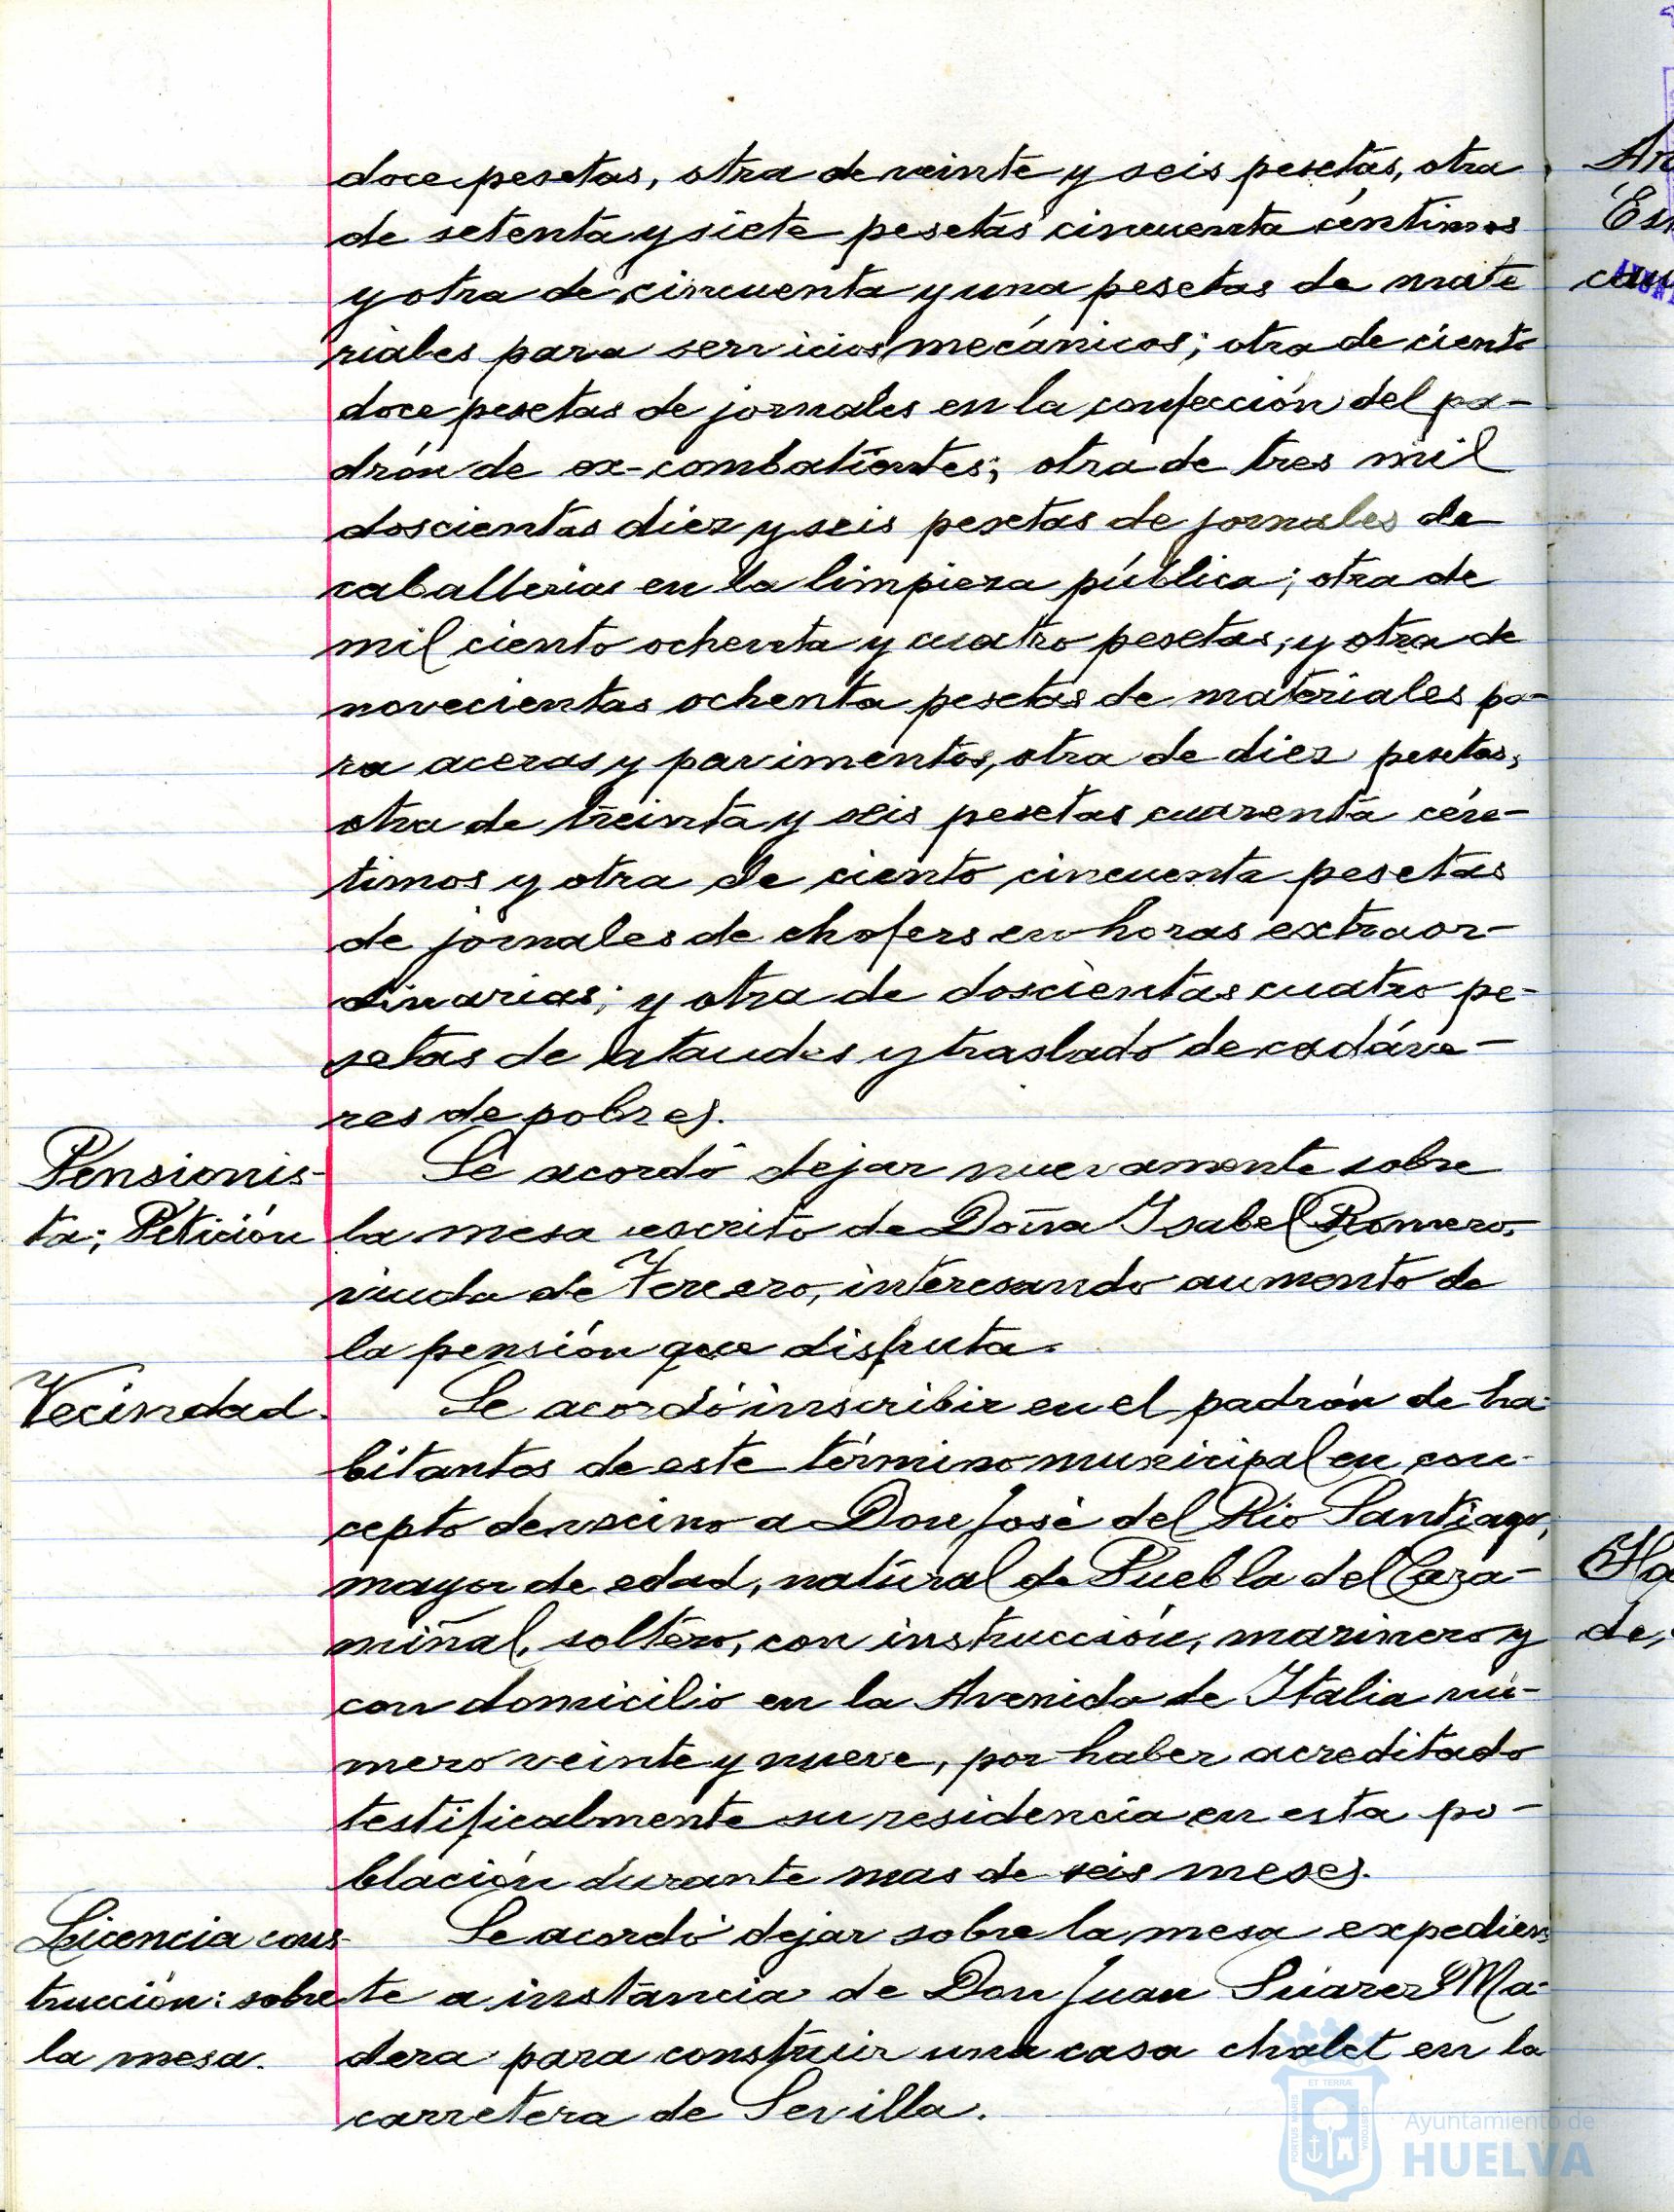 doce pesetas, otra de veinte y seis pesetas, otra
de setenta y siete pesetas cincuenta céntimos
y otra de cincuenta y una pesetas de mate
riales para servicios mecánicos; otra de ciento
doce pesetas de jornales en la confección del pa-
drón de ex-combatientes; otra de tres mil
doscientas diez y seis pesetas de jornales de
caballerias en la limpieza pública; otra de
mil ciento ochenta y cuatro pesetas; y otra de
novecientas ochenta pesetas de materiales pa-
ra aceras y pavimentos, otra de diez pesetas,
otra de treinta y seis pesetas cuarenta cén-
timos y otra de ciento cincuenta pesetas
de jornales de chofers en horas extraor-
dinarias; y otra de doscientas cuatro pe-
setas de ataudes y traslado de cadáve-
res de pobres.
Pensionis-
ta; Petición
Se acordó dejar nuevamente sobre
la mesa escrito de Doña Isabel Romero,
viuda de Tercero, interesando aumento de
la pensión que disfruta.
Vecindad.
Se acordó inscribir en el padrón de ha-
bitantes de este término municipal en con-
cepto de vecino a Don José del Rio Santiago,
mayor de edad, natural de Puebla del Cara-
miñal, soltero, con instrucción, marinero y
con domicilio en la Avenida de Italia nú-
mero veinte y nueve, por haber acreditado
testificalmente su residencia en esta po-
blación durante mas de seis meses.
Licencia cons-
trucción: sobre
la mesa.
Se acordó dejar sobre la mesa expedien-
te a instancia de Don Juan Suarez Ma-
dera para construir una casa chalet en la
carretera de Sevilla.
Ayuntamiento de
HUELVA